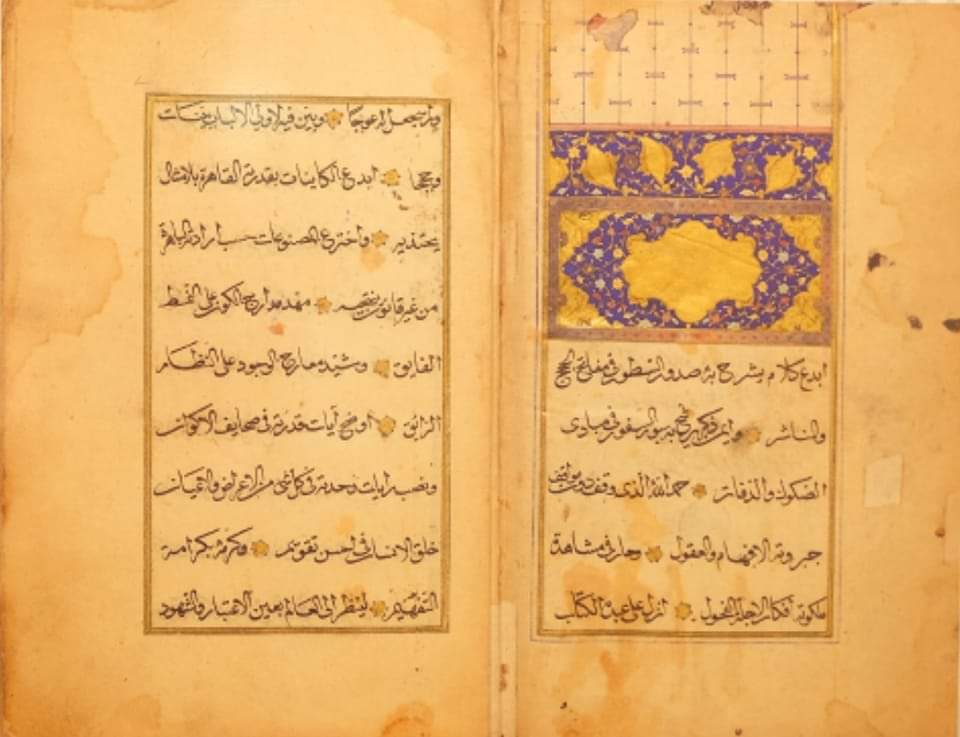 ابدع كلام يشرح به صدور السطور فى مفاتح الحجج
والمناشر وابهى ذكر يرشح به سور السفور فى مبادى
الصكوك والدفاتر حمد الله الذى وقف دون مواقف
جبروته الافهام والعقول وحار فى مشاهدة
ملكوته افكار الاجلة الفحول انزل على عبده الكتاب
ولم يجعل له عوجا وبين فيه لاولى الالباب بينات
وحججا ابدع الكاينات بقدرته القاهرة بلا مثال
يحتذيه واخترع المصنوعات حسب ارادته الباهرة
من غير قانون ينتحيه مهد مدارج الكون على النمط
الفايق وشيد معارج الوجود على النظام
الرايق اوضح آيات قدرته فى صحايف الاكوان
ونصب رايات وحدته فى كل شى من الاعراض والاعيان
خلق الانسان فى احسن تقويم وكرمه بكرامة
التفهيم لينظر الى العالم بعين الاعتبار والشهود